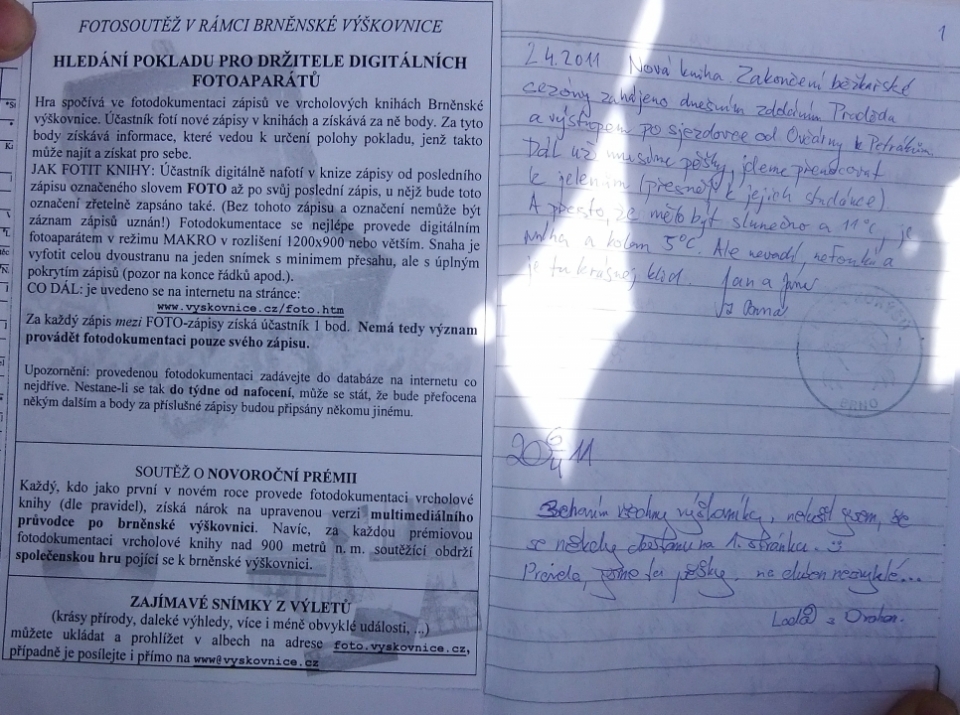 FOTOSOUTĚŽ V RÁMCI BRNĚNSKÉ VÝŠKOVNICE
HLEDÁNÍ POKLADU PRO DRŽITELE DIGITÁLNÍCH
FOTOAPARÁTŮ
Hra spočívá ve fotodokumentaci zápisů ve vrcholových knihách Brněnské
výškovnice. Účastník fotí nové zápisy v knihách a získává za ně body. Za tyto
body získává informace, které vedou k určení polohy pokladu, jenž takto
může najít a získat pro sebe.
JAK FOTIT KNIHY: Účastník digitálně nafotí v knize zápisy od posledního
zápisu označeného slovem FOTO až po svůj poslední zápis, u nějž bude toto
označení zřetelně zapsáno také. (Bez tohoto zápisu a označení nemůže být
záznam zápisů uznán!) Fotodokumentace se nejlépe provede digitálním
fotoaparátem v režimu MAKRO v rozlišení 1200x900 nebo větším. Snaha je
vyfotit celou dvoustranu na jeden snímek s minimem přesahu, ale s úplným
pokrytím zápisů (pozor na konce řádků apod.).
CO DÁL: je uvedeno se na internetu na stránce:
www.vyskovnice.cz/foto.htm
Za každý zápis mezi FOTO-zápisy získá účastník 1 bod. Nemá tedy význam
provádět fotodokumentaci pouze svého zápisu.
Upozornění: provedenou fotodokumentaci zadávejte do databáze na internetu co
nejdříve. Nestane-li se tak do týdne od nafocení, může se stát, že bude přefocena
někým dalším a body za příslušné zápisy budou připsány někomu jinému.
SOUTĚŽ O NOVOROČNÍ PRÉMII
Každý, kdo jako první v novém roce provede fotodokumentaci vrcholové
knihy (dle pravidel), získá nárok na upravenou verzi multimediálního
průvodce po brněnské výškovnici. Navíc, za každou prémiovou
fotodokumentaci vrcholové knihy nad 900 metrů n. m. soutěžící obdrží
společenskou hru pojící se k brněnské výškovnici.
ZAJÍMAVÉ SNÍMKY Z VÝLETŮ
(krásy přírody, daleké výhledy, více i méně obvyklé události, ...)
můžete ukládat a prohlížet v albech na adrese foto.vyskovnice.cz,
případně je posílejte i přímo na www@vyskovnice.cz
1
2.4.2011 Nová kniha Zakončení běžkařské
sezóny zahájeno dnešním zdoláním Praděda
a výstupem po sjezdovce od Ovčárny k Petrovkám.
Dál už musíme pěšky, jdeme přenocovat
k jelením (přesněji k jejich studánce)
A přesto, že mělo být slunečno a 11°C, je
mlha a kolem 5°C. Ale nevadí, nefouká a
je tu krásnej klid. Jan a
z Brna
BRNO
20 11
všechny výškovnice,
se někdy dostanu na 1. stránku.
Pravda, jsme tu pěšky, na duben neobvyklé...